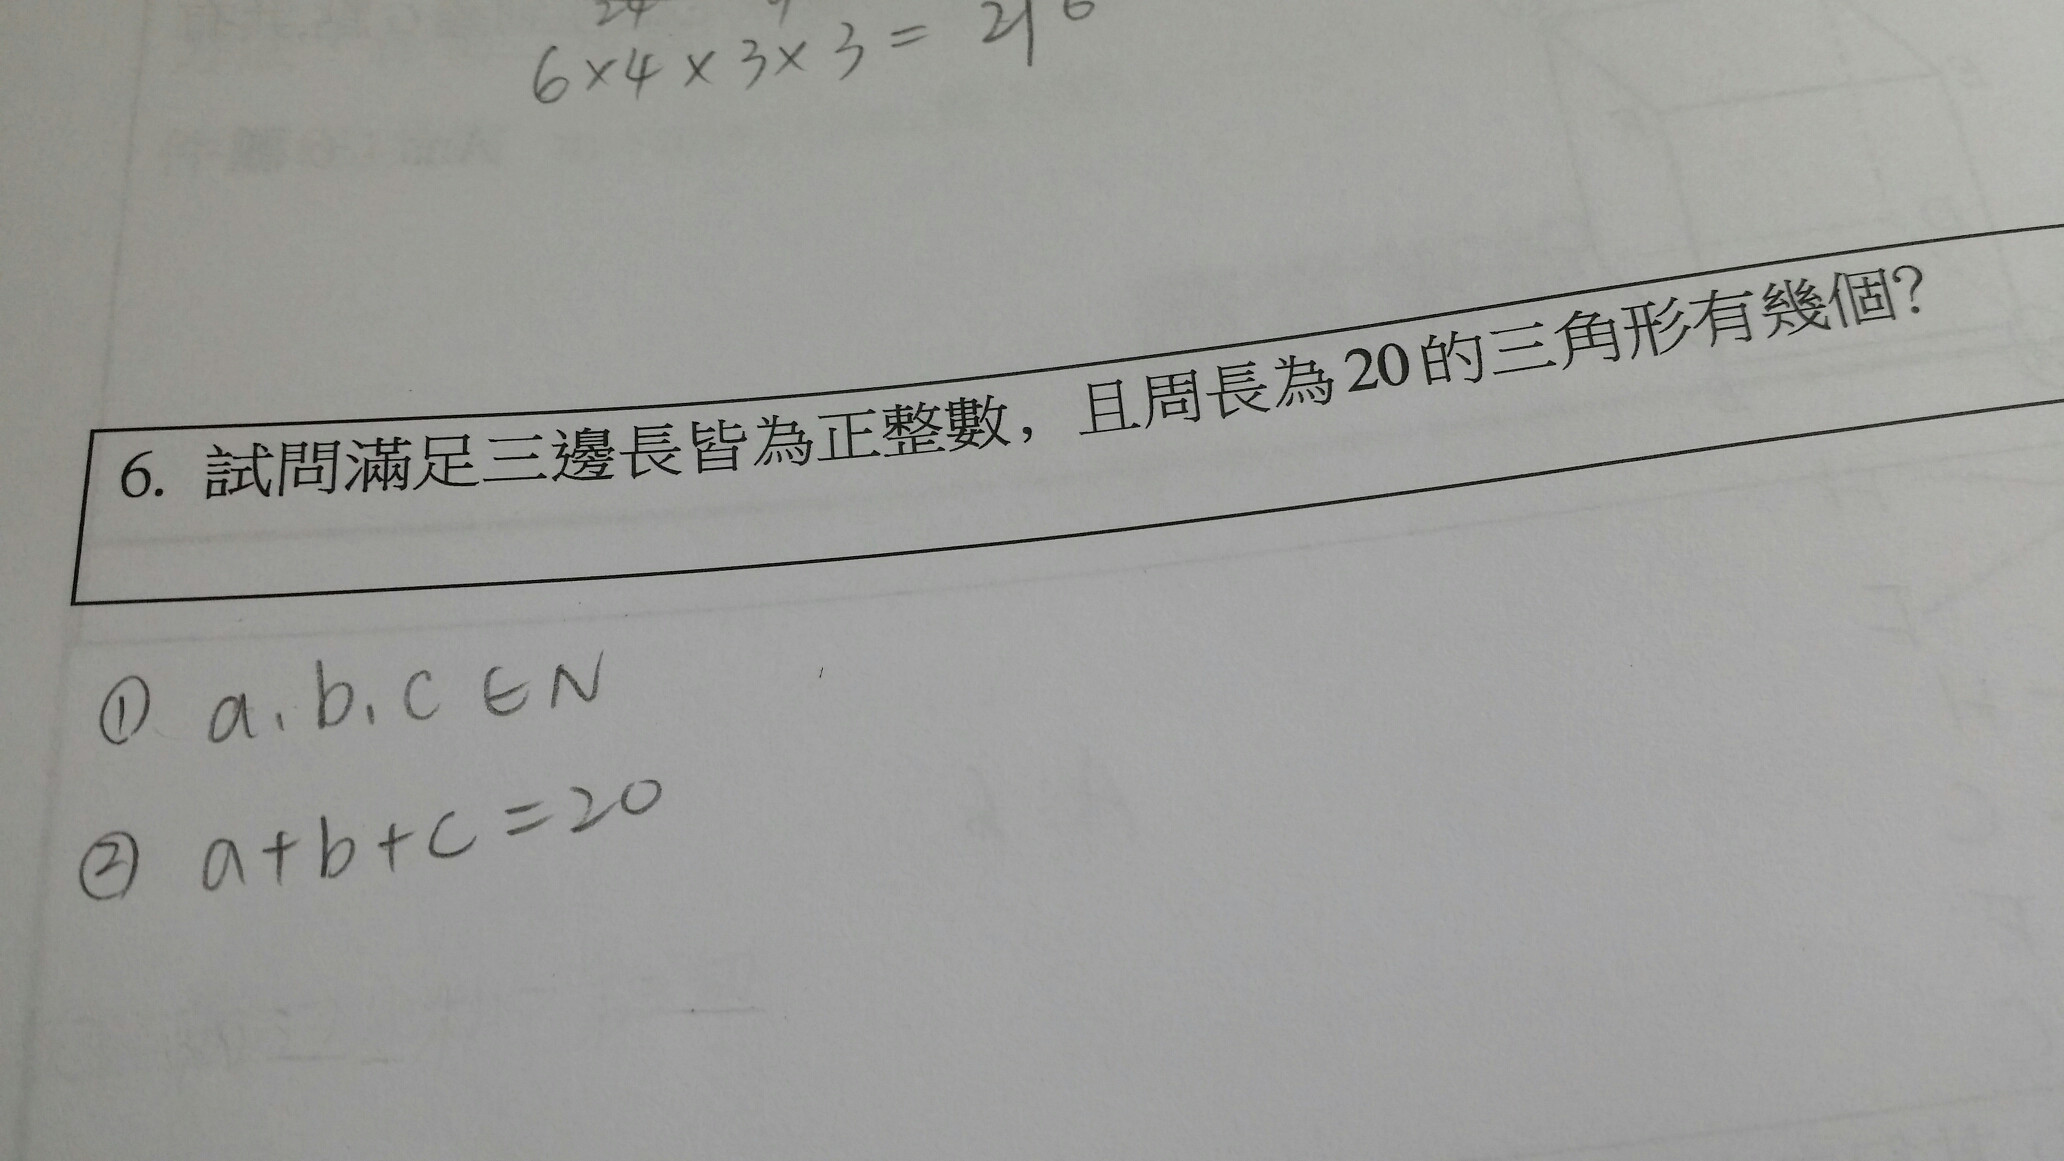 24 9
6×4×3×3=216
6. 試問滿足三邊長皆為正整數，且周長為20的三角形有幾個?
① a, b, c ∈ N
② a+b+c=20